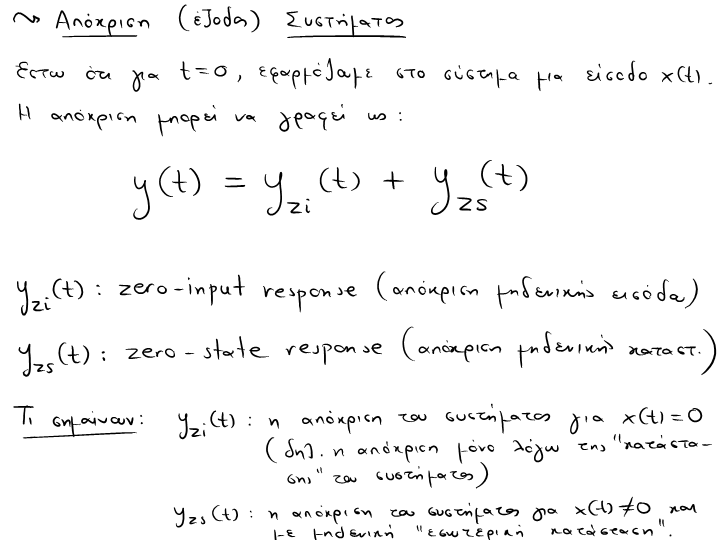 ~> Απόκριση (έξοδος) Συστήματος
Έστω ότι για t=0, εφαρμόζουμε στο σύστημα μια είσοδο x(t).
Η απόκριση μπορεί να γραφεί ως:
y(t) = y_zi(t) + y_zs(t)
y_zi(t): zero-input response (απόκριση μηδενικής εισόδου)
y_zs(t): zero-state response (απόκριση μηδενικής καταστ.)
Τι σημαίνουν: y_zi(t): η απόκριση του συστήματος για x(t)=0
(δηλ. η απόκριση μόνο λόγω της "κατάστα-
σης" του συστήματος)
y_zs(t): η απόκριση του συστήματος για x(t)≠0 και
με μηδενική "εσωτερική κατάσταση".